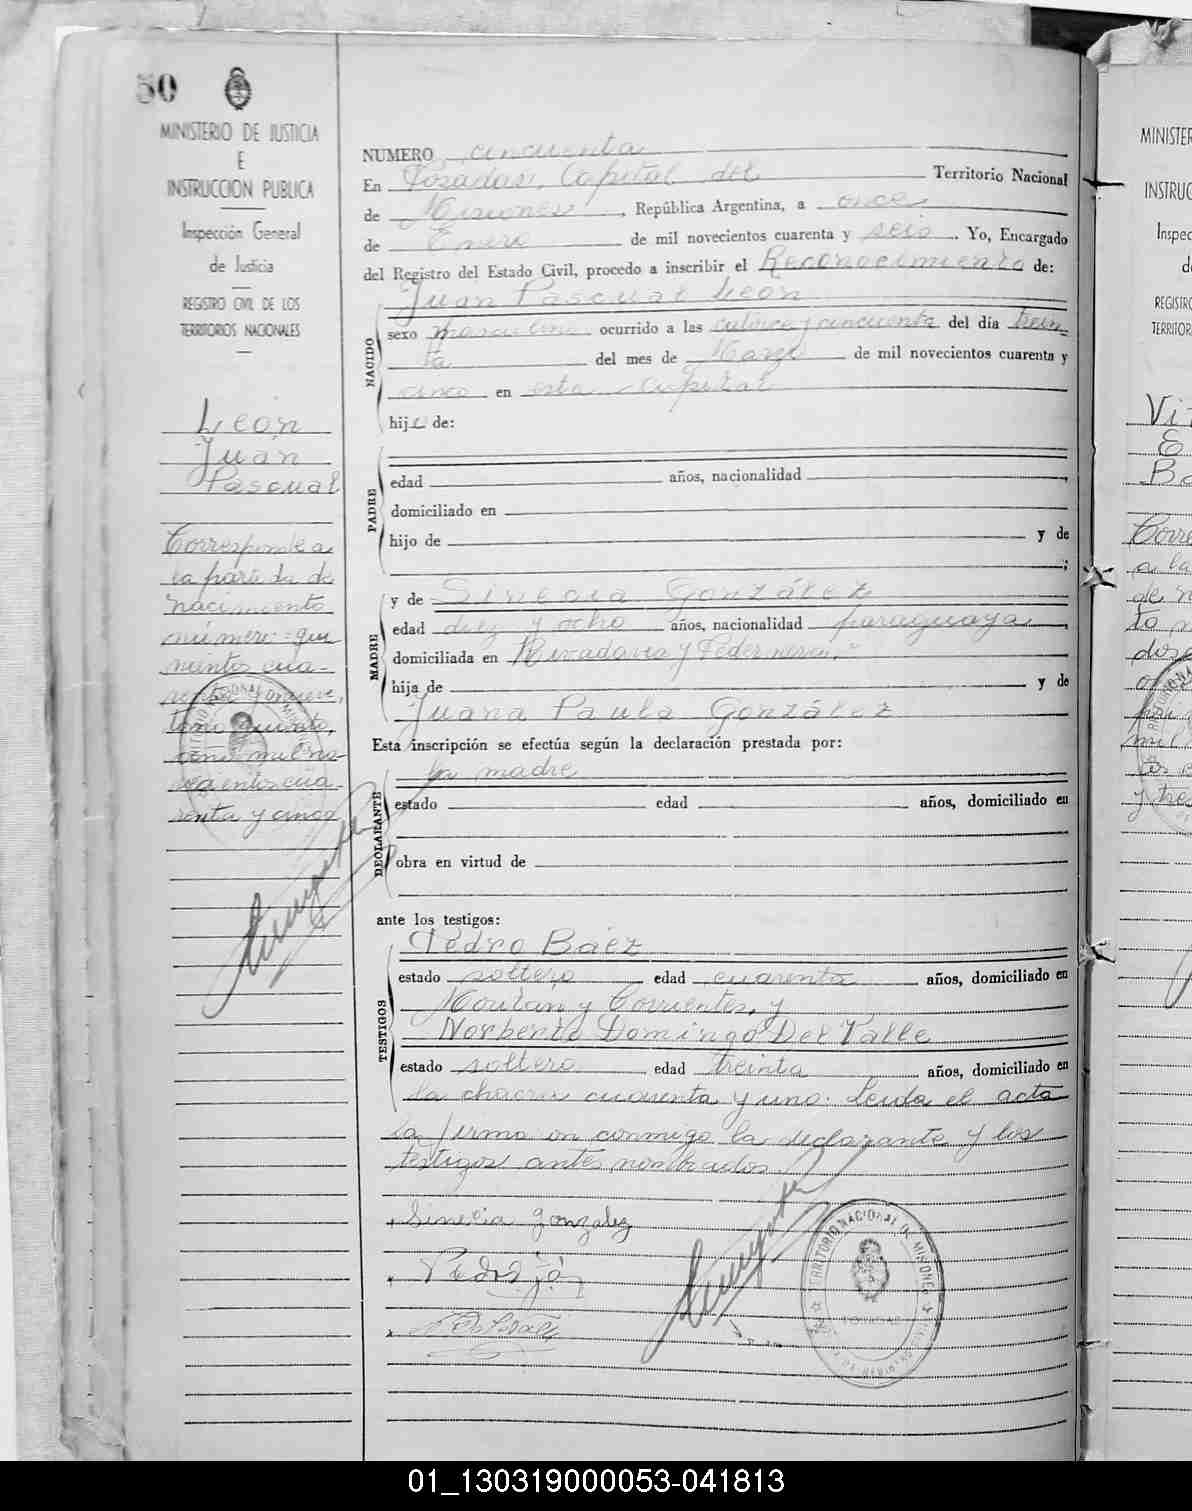 50
MINISTERIO DE JUSTICIA
E
INSTRUCCION PUBLICA
Inspección General
de Justicia
REGISTRO CIVIL DE LOS
TERRITORIOS NACIONALES
León
Juan
Pascual
Corresponde a
la partida de
nacimiento
número quin
nientos cua-
renta y nueve,
tomo quinto,
año mil no-
vecientos cua-
renta y cinco
NUMERO cincuenta
En Posadas, Capital del Territorio Nacional
de Misiones, República Argentina, a once
de Enero de mil novecientos cuarenta y seis. Yo, Encargado
del Registro del Estado Civil, procedo a inscribir el Reconocimiento de:
Juan Pascual León
NACIDO
sexo masculino ocurrido a las catorce y cincuenta del día trein
ta del mes de Marzo de mil novecientos cuarenta y
cinco en esta capital
hijo de:
PADRE
edad años, nacionalidad
domiciliado en
hijo de y de
MADRE
y de Sinecia González
edad diez y ocho años, nacionalidad paraguaya,
domiciliada en Rivadavia y Pedernera.
hija de y de
Juana Paula González
Esta inscripción se efectúa según la declaración prestada por:
la madre
DECLARANTE
estado edad años, domiciliado en
obra en virtud de
ante los testigos:
Pedro Báez
TESTIGOS
estado soltero edad cuarenta años, domiciliado en
y Corrientes, y
Norberto Domingo Del Valle
estado soltero edad treinta años, domiciliado en
la chacra cuarenta y uno. Leída el acta
la firma on conmigo la declarante y los
testigos antes nombrados.
Sinecia González
TERRITORIO NACIONAL DE MISIONES
VITER
MINISTER
INSTRUC
Inspec
d
REGISTRO
TERRITOR
Vi
E
Ba
Corre
a la
de n
to n
dos
y tre
01_130319000053-041813